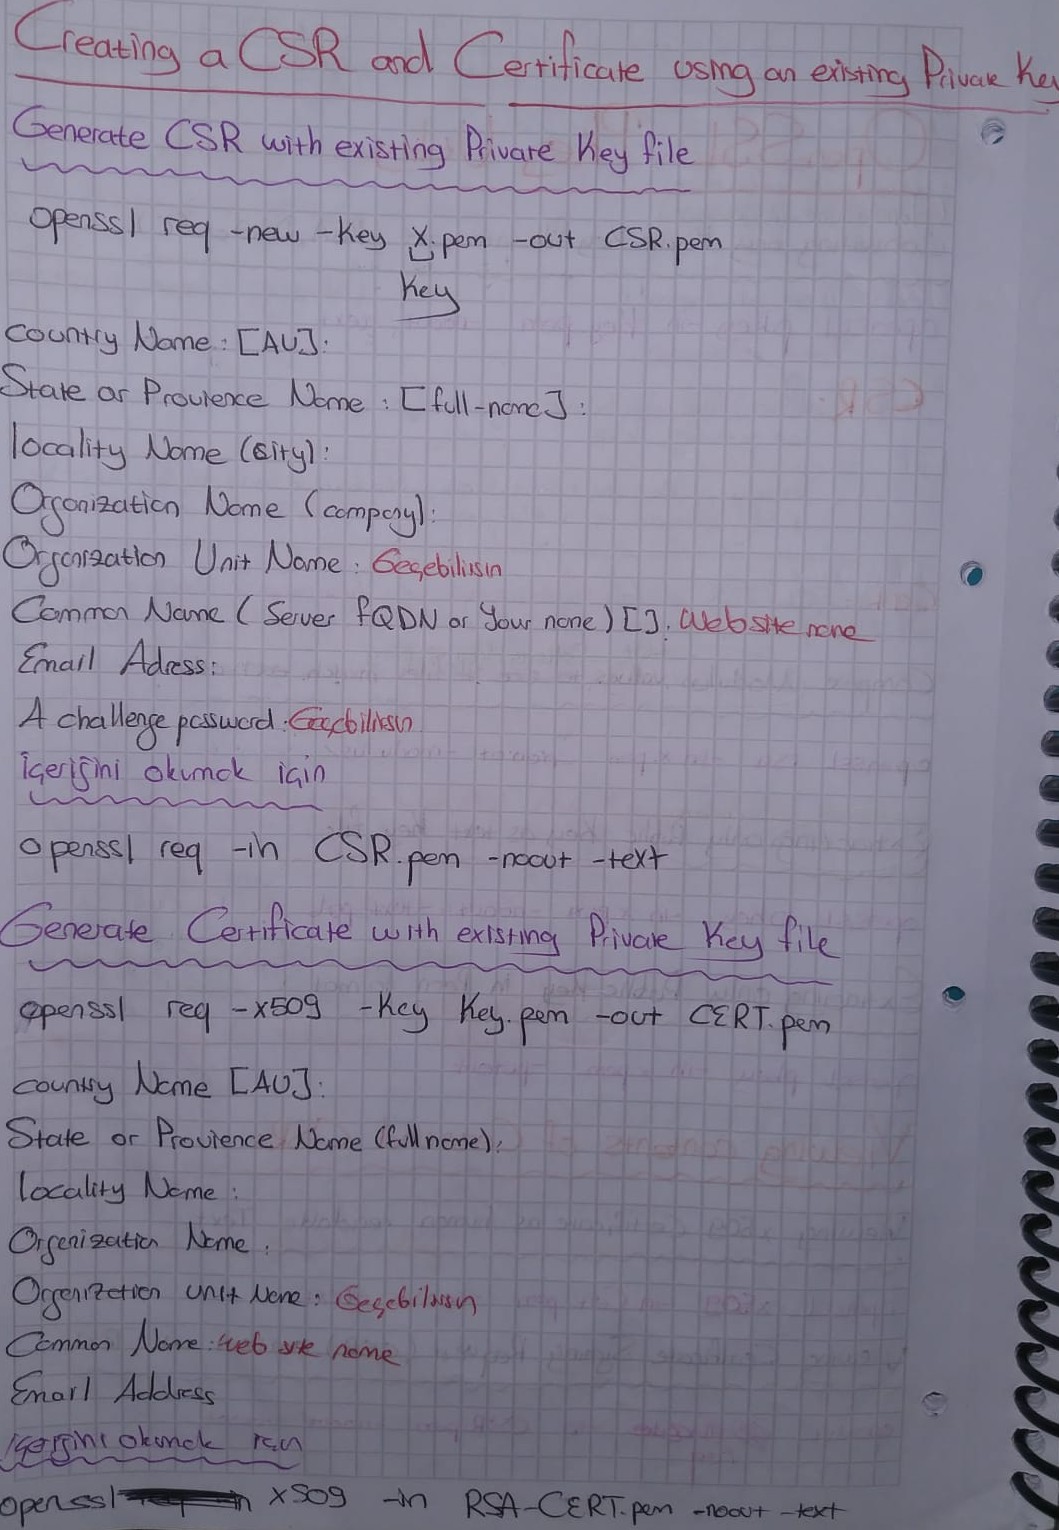 Creating a CSR and Certificate using an existing Private Key
Generate CSR with existing Private Key file
openssl req -new -key X.pem -out CSR.pem
Key
Country Name : [AU]:
State or Provience Name : [full-name] :
locality Name (city) :
Organization Name (company) :
Organization Unit Name : Geçebilirsin
Common Name ( Server FQDN or Your name ) [] : Web site name
Email Adress :
A challenge password : Geçebilirsin
İçeriğini okumak için
openssl req -in CSR.pem -noout -text
Generate Certificate with existing Private Key file
openssl req -x509 -key Key.pem -out CERT.pem
Country Name [AU] :
State or Provience Name (full name) :
locality Name :
Organization Name :
Organization unit Name : Geçebilirsin
Common Name : web site name
Email Address
İçeriğini okumak için
openssl x509 -in RSA-CERT.pem -noout -text